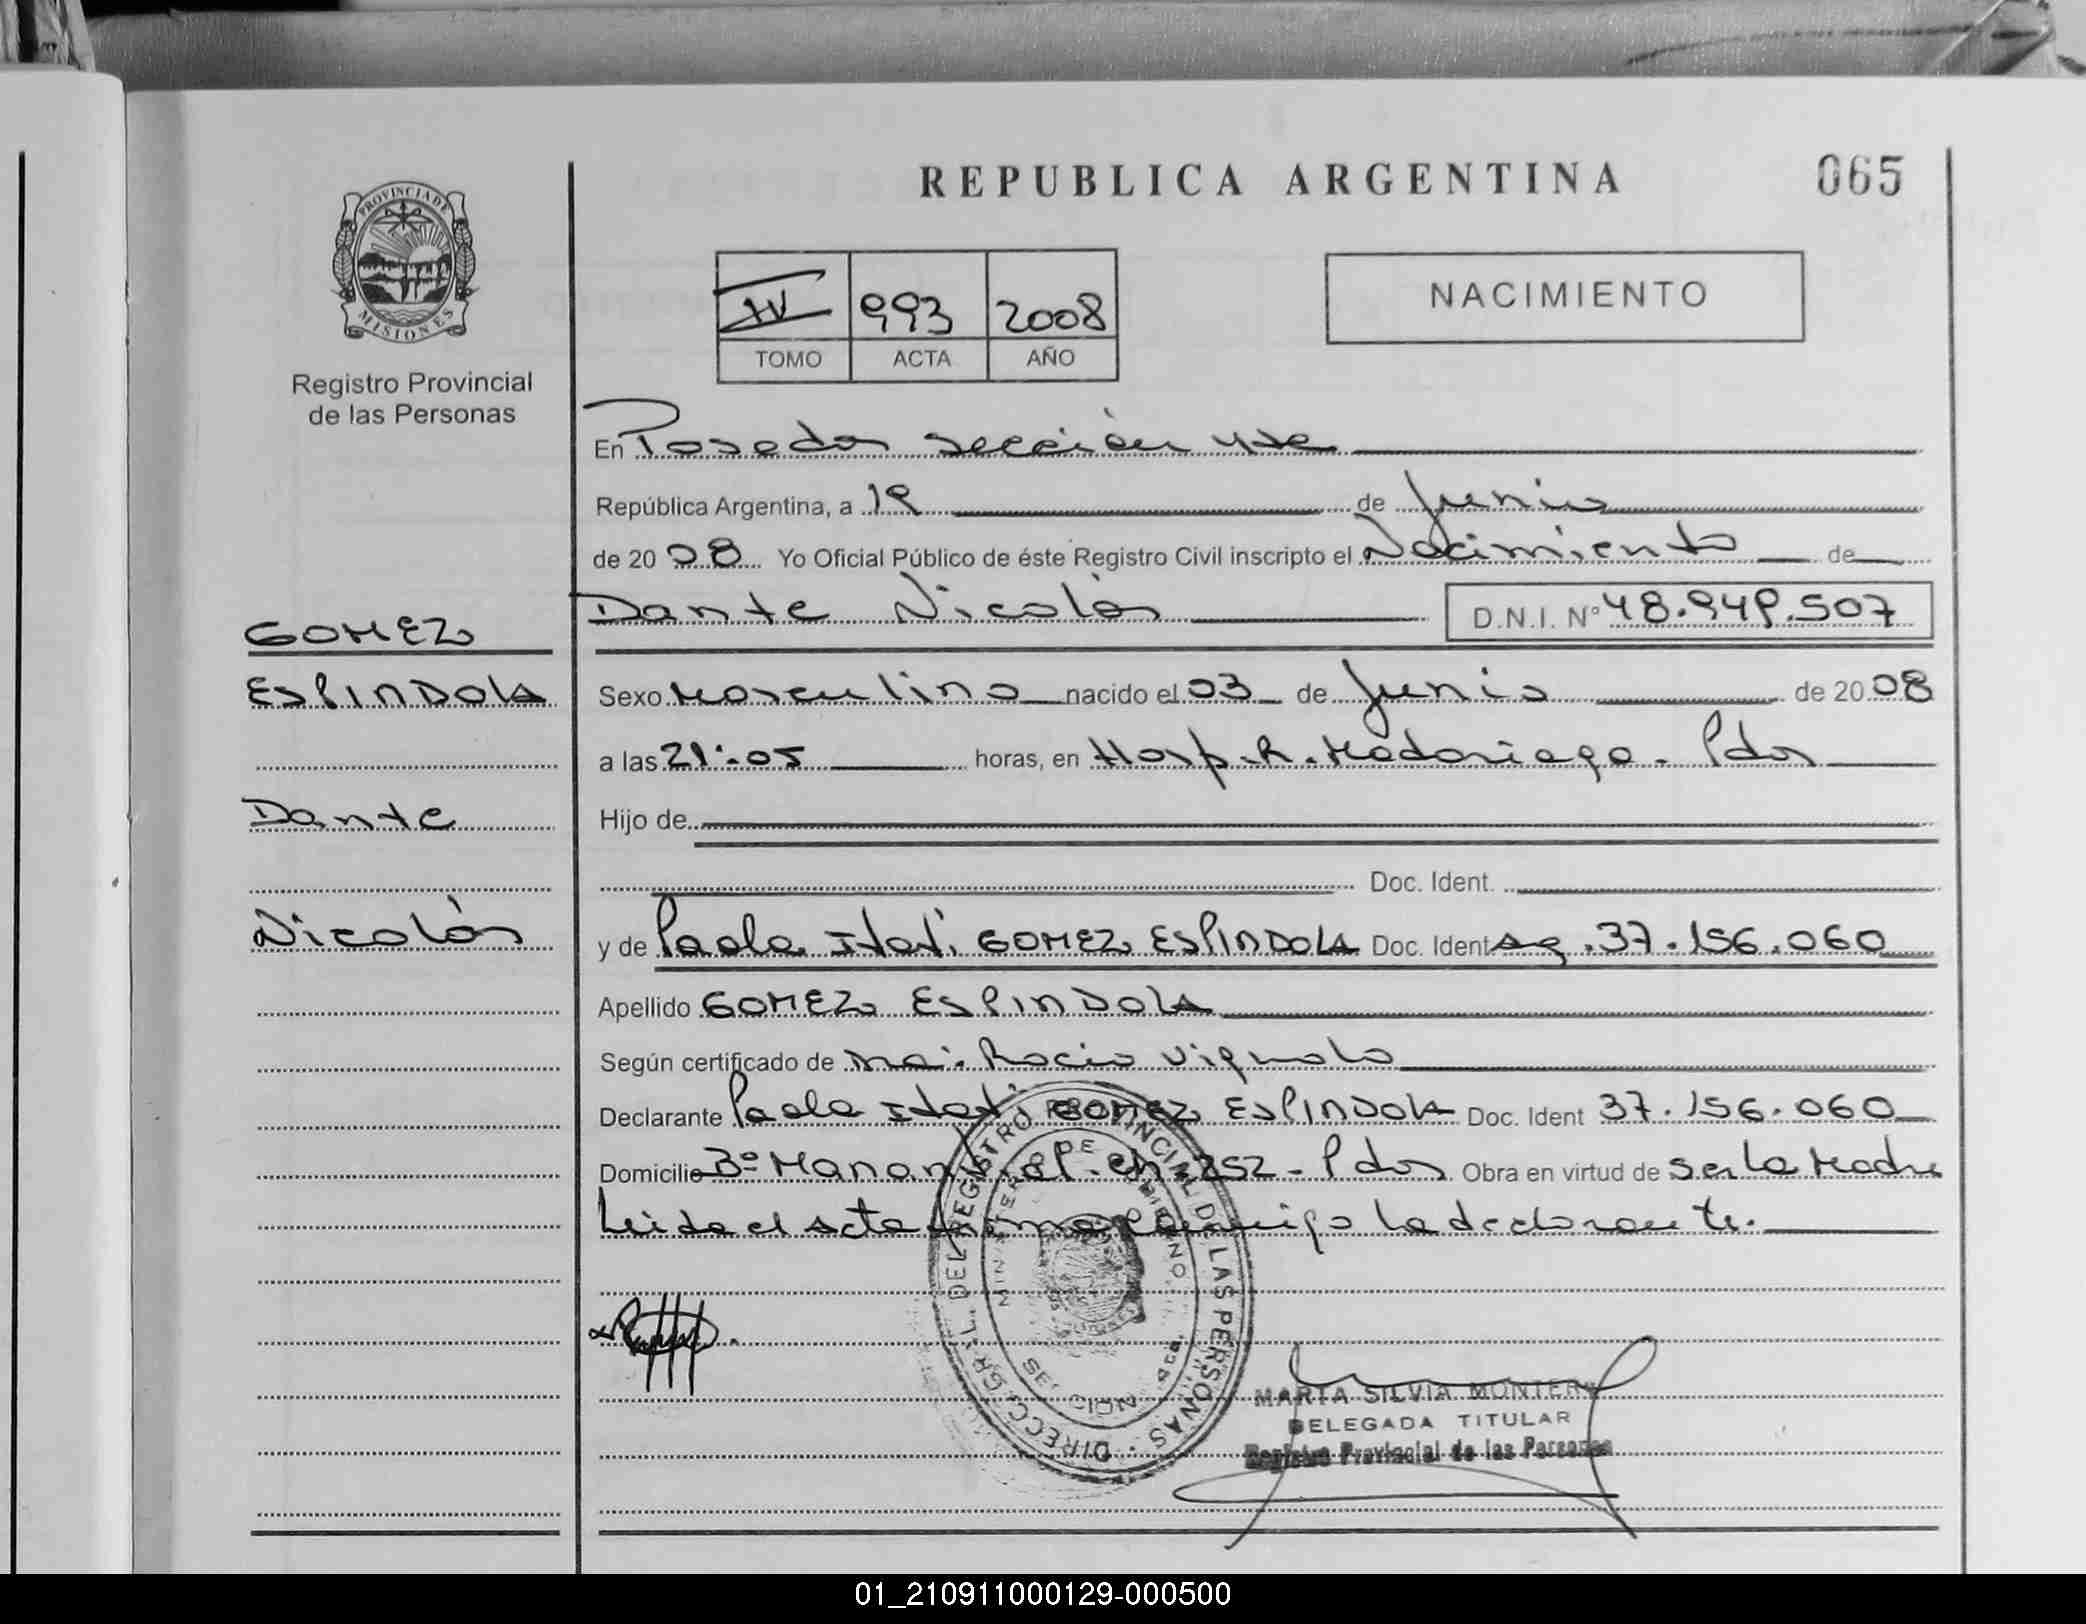 REPUBLICA ARGENTINA
065
PROVINCIA DE
MISIONES
Registro Provincial
de las Personas
IV 993 2008
TOMO ACTA AÑO
NACIMIENTO
En Posadas sección
República Argentina, a 19 de Junio
de 2008 Yo Oficial Público de éste Registro Civil inscripto el Nacimiento de
Dante Nicolás D.N.I. Nº 48.949.507
GOMEZ
ESPINDOLA
Dante
Nicolás
Sexo Masculino nacido el 03 de Junio de 2008
a las 21:05 horas, en Hosp. R. Madariaga - Pdas
Hijo de
Doc. Ident.
y de Paola Itatí GOMEZ ESPINDOLA Doc. Ident Arg. 37.156.060
Apellido GOMEZ ESPINDOLA
Según certificado de Rocio Vignolo
Declarante Paola Itatí GOMEZ ESPINDOLA Doc. Ident 37.156.060
Domicilio Bº Manantial - Ch 252 - Pdas Obra en virtud de Ser la Madre
Leida el Acta firma conmigo la declarante.
DIRECC. GRAL. DEL REGISTRO PROVINCIAL DE LAS PERSONAS
MINISTERIO DE GOBIERNO
MARTA SILVIA MONTERO
DELEGADA TITULAR
Registro Provincial de las Personas
01_210911000129-000500